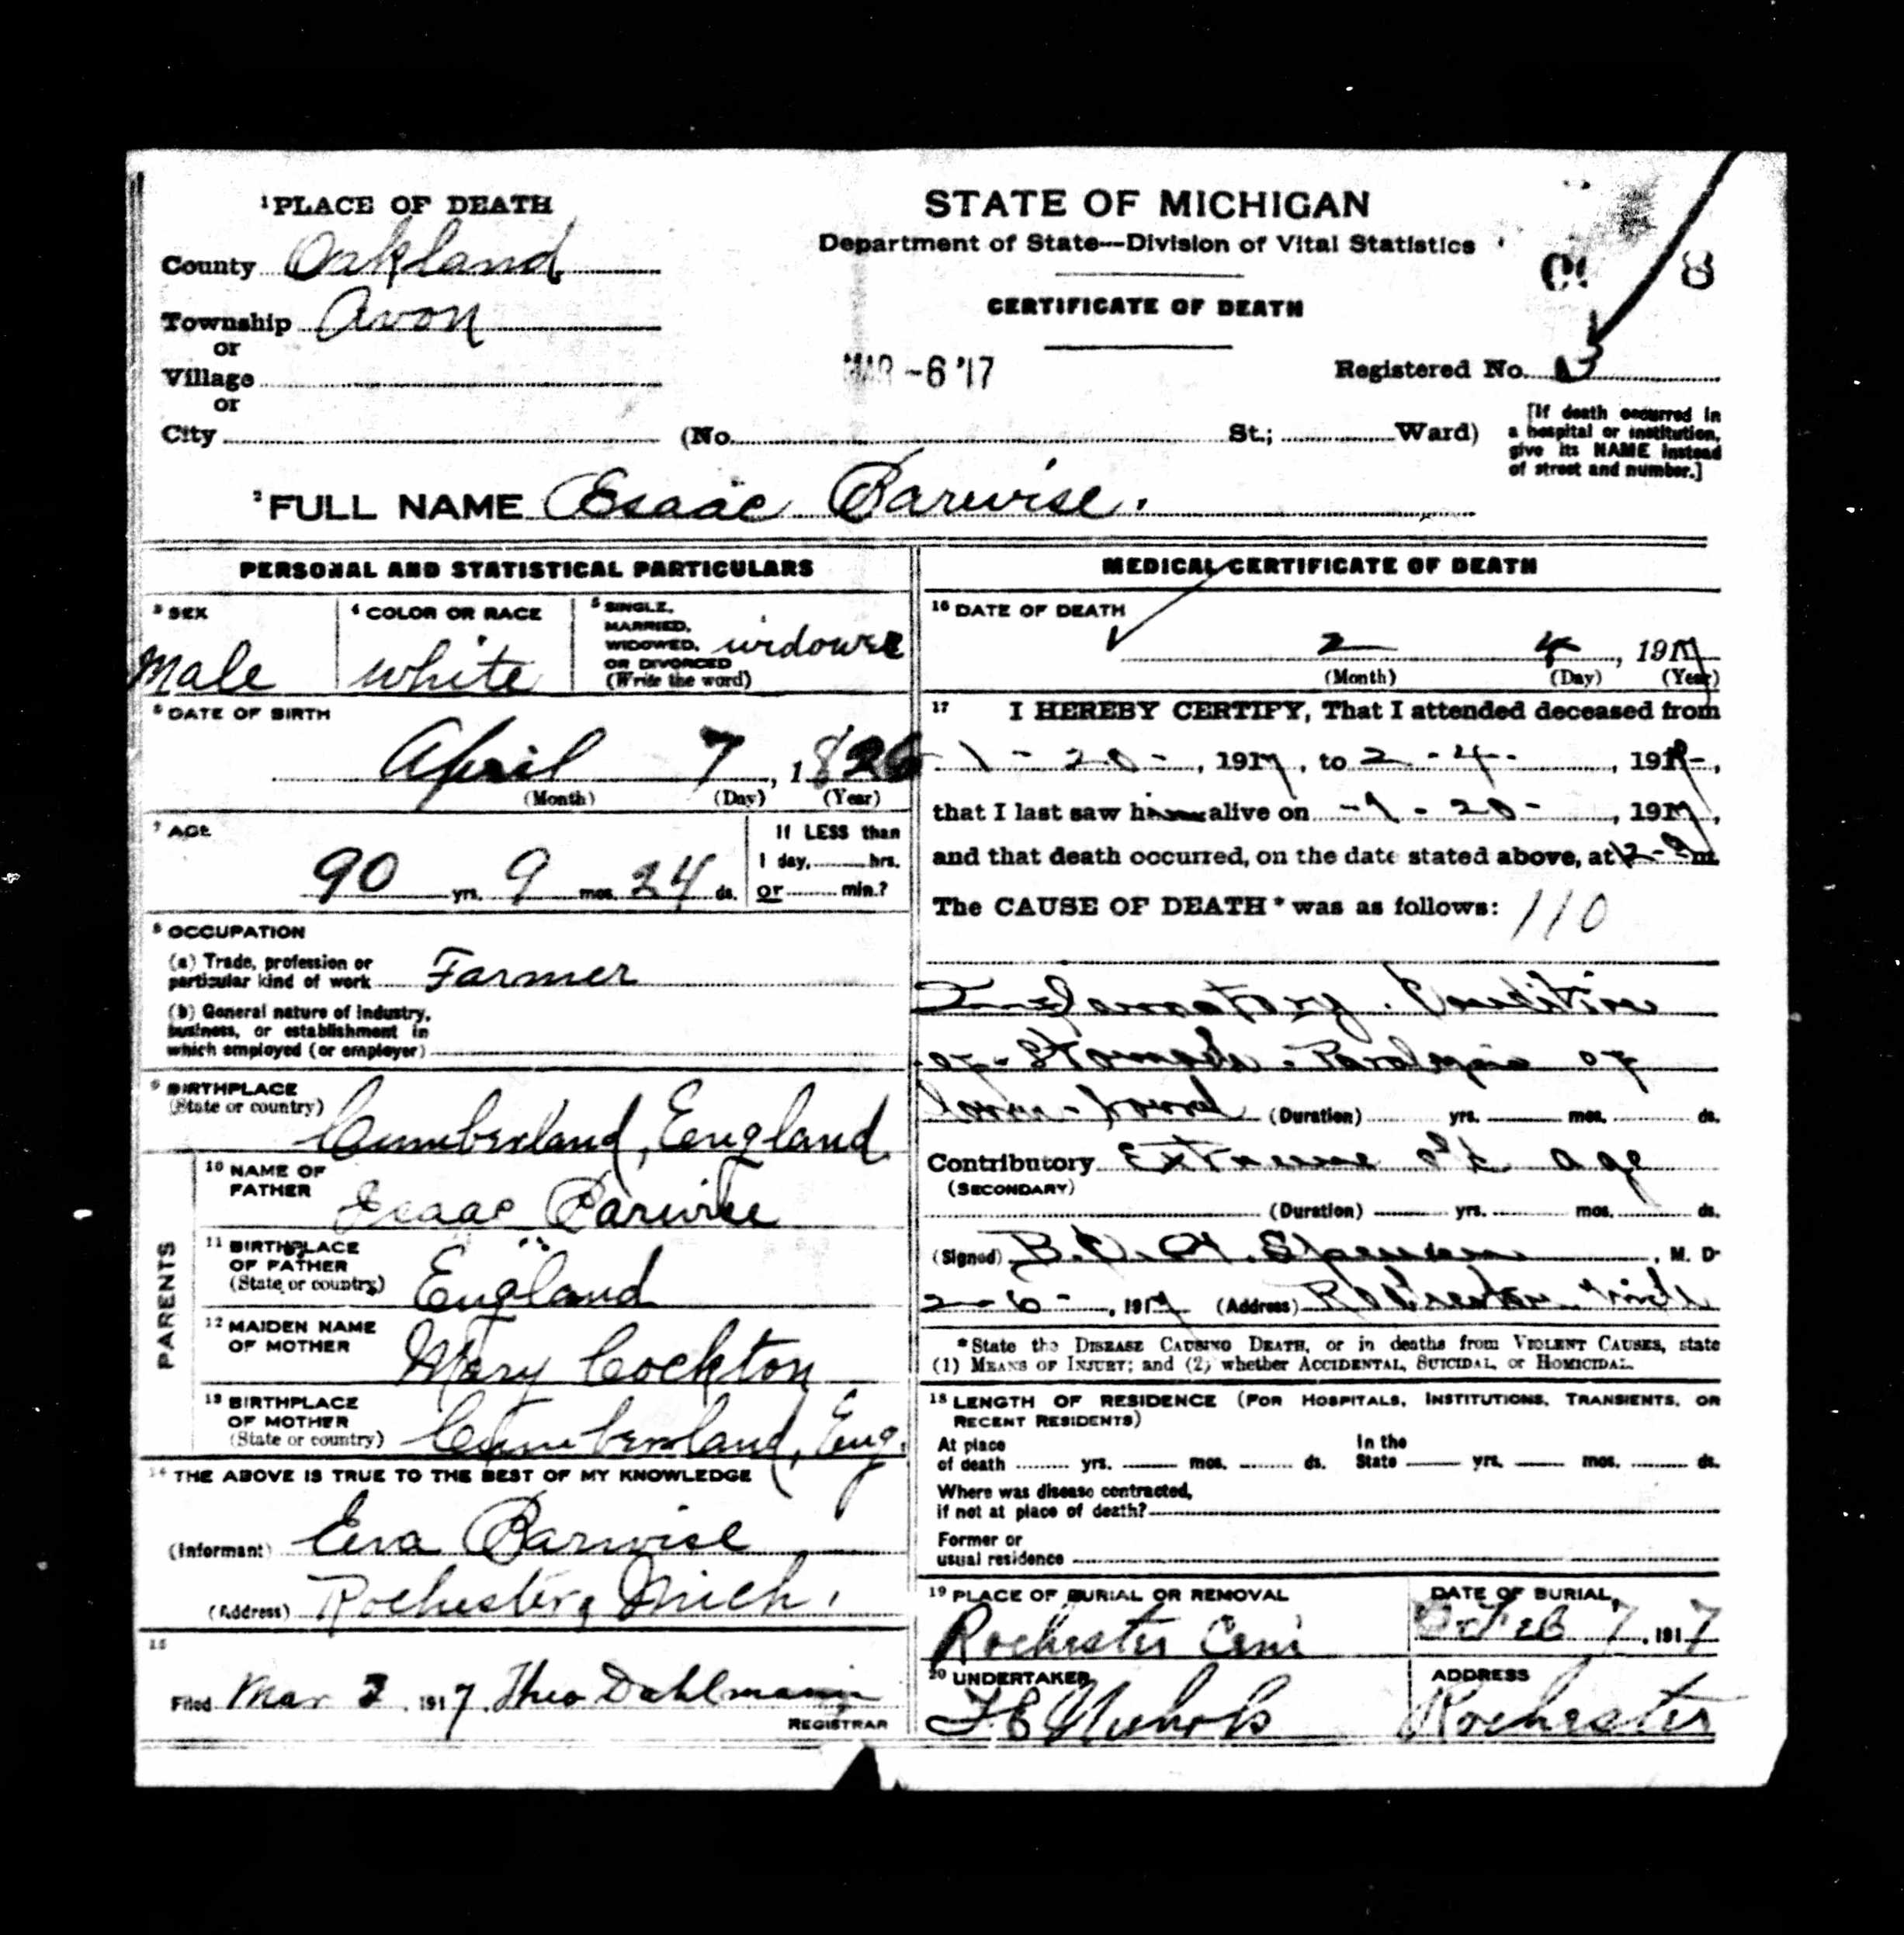 1 PLACE OF DEATH
County Oakland
Township Avon
or
Village
or
City (No. St.; Ward)
STATE OF MICHIGAN
Department of State—Division of Vital Statistics
CERTIFICATE OF DEATH
MAR -6 '17
8
Registered No.
[If death occurred in
a hospital or institution,
give its NAME instead
of street and number.]
2 FULL NAME Esaac Barwise.
PERSONAL AND STATISTICAL PARTICULARS
3 SEX
Male
4 COLOR OR RACE
White
5 SINGLE,
MARRIED,
WIDOWED,
OR DIVORCED
(Write the word)
widower
6 DATE OF BIRTH
April 7, 1826
(Month) (Day) (Year)
7 AGE
90 yrs. 9 mos. 24 ds.
If LESS than
1 day, hrs.
or min.?
8 OCCUPATION
(a) Trade, profession or
particular kind of work Farmer
(b) General nature of industry,
business, or establishment in
which employed (or employer)
9 BIRTHPLACE
(State or country)
Cumberland, England
PARENTS
10 NAME OF
FATHER
Isaac Barwise
11 BIRTHPLACE
OF FATHER
(State or country)
England
12 MAIDEN NAME
OF MOTHER
Mary Cockton
13 BIRTHPLACE
OF MOTHER
(State or country)
Cumberland, Eng.
14 THE ABOVE IS TRUE TO THE BEST OF MY KNOWLEDGE
(Informant) Eva Barwise
(Address) Rochester, Mich.
15
Filed Mar 3, 1917, Theo Dahlmann
REGISTRAR
MEDICAL CERTIFICATE OF DEATH
16 DATE OF DEATH
2 4, 1917
(Month) (Day) (Year)
17 I HEREBY CERTIFY, That I attended deceased from
1 - 20 -, 1917, to 2 - 4 -, 1917,
that I last saw him alive on - 1 - 20 -, 1917,
and that death occurred, on the date stated above, at m.
The CAUSE OF DEATH* was as follows: 110
Inflamatory Condition
of Stomach. Paralysis of
(Duration) yrs. mos. ds.
Contributory Extreme old age
(SECONDARY)
(Duration) yrs. mos. ds.
(Signed) B. , M. D.
2 - 6 -, 1917 (Address) Rochester Mich
*State the DISEASE CAUSING DEATH, or in deaths from VIOLENT CAUSES, state
(1) MEANS OF INJURY; and (2) whether ACCIDENTAL, SUICIDAL, or HOMICIDAL.
18 LENGTH OF RESIDENCE (FOR HOSPITALS, INSTITUTIONS, TRANSIENTS, OR
RECENT RESIDENTS)
At place
of death yrs. mos. ds.
In the
State yrs. mos. ds.
Where was disease contracted,
if not at place of death?
Former or
usual residence
19 PLACE OF BURIAL OR REMOVAL
Rochester Cem
DATE OF BURIAL,
Feb 7, 1917
20 UNDERTAKER
Nichols
ADDRESS
Rochester